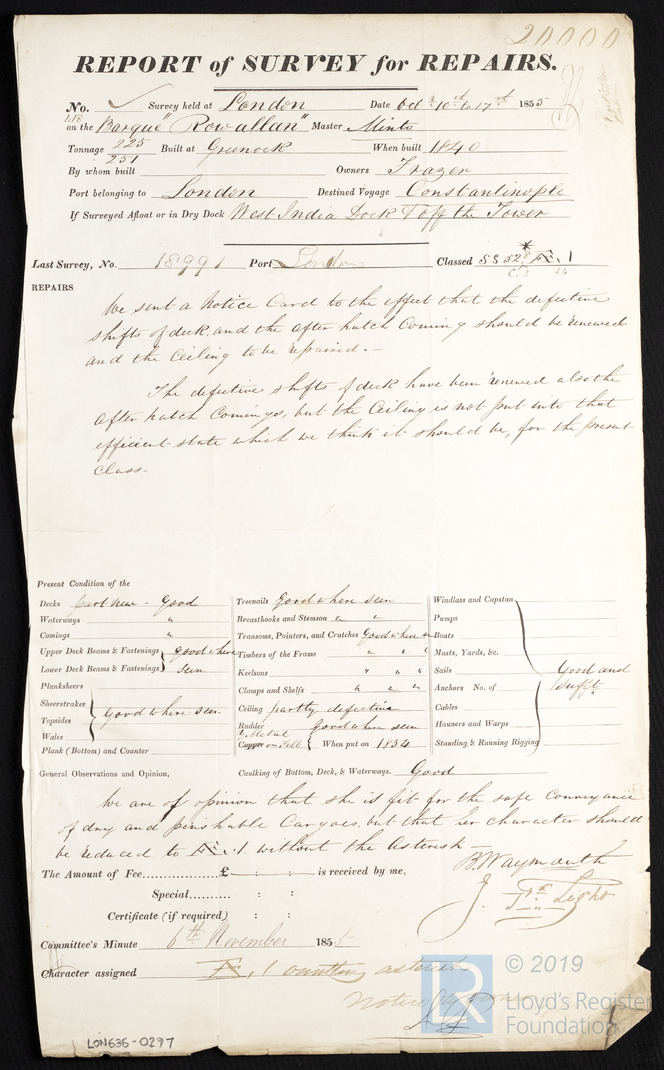 20000
REPORT of SURVEY for REPAIRS.
No. ✓ Survey held at London Date Oct 10th to 17th 1855
418 on the Barque "Rowallan" Master Minto
Tonnage 225 Built at Greenock When built 1840
251
By whom built Owners Frazer
Port belonging to London Destined Voyage Constantinople
If Surveyed Afloat or in Dry Dock West India Dock & off the Tower
Last Survey, No. 18991 Port London Classed SS 52 * Æ. 1
REPAIRS
We sent a Notice Card to the effect that the defective
shifts of deck and the after hatch Coming should be renewed
and the Ceiling to be repaired. —
The defective shifts of deck have been renewed also the
After hatch Comings, but the Ceiling is not put into that
efficient state which we think it should be, for the present
Class.
Present Condition of the
Decks part New - Good
Waterways "
Comings "
Upper Deck Beams & Fastenings } Good where
Lower Deck Beams & Fastenings } seen
Planksheers
Sheerstrakes
Topsides } Good where seen
Wales
Plank (Bottom) and Counter
Treenails Good where seen
Breasthooks and Stemson " "
Transoms, Pointers, and Crutches Good where
Timbers of the Frame " " "
Keelsons " " "
Clamps and Shelfs " " "
Ceiling partly defective
Rudder Good where seen
Y. Metal
Copper on Felt { When put on 1854
Windlass and Capstan
Pumps
Boats
Masts, Yards, &c.
Sails Good and
Anchors No. of Sufft
Cables
Hawsers and Warps
Standing & Running Rigging
General Observations and Opinion, Caulking of Bottom, Deck, & Waterways. Good
We are of opinion that she is fit for the safe Conveyance
of dry and perishable Cargoes, but that her character should
be reduced to Æ. 1 without the Asterisk —
B. Waymouth
The Amount of Fee............... £ : : is received by me,
J. Light
Special.......... : :
Certificate (if required) : :
Committee's Minute 6th November 1855
Character assigned Æ. 1 omitting asterisk
LR © 2019
Lloyd's Register
Foundation
LON636-0297